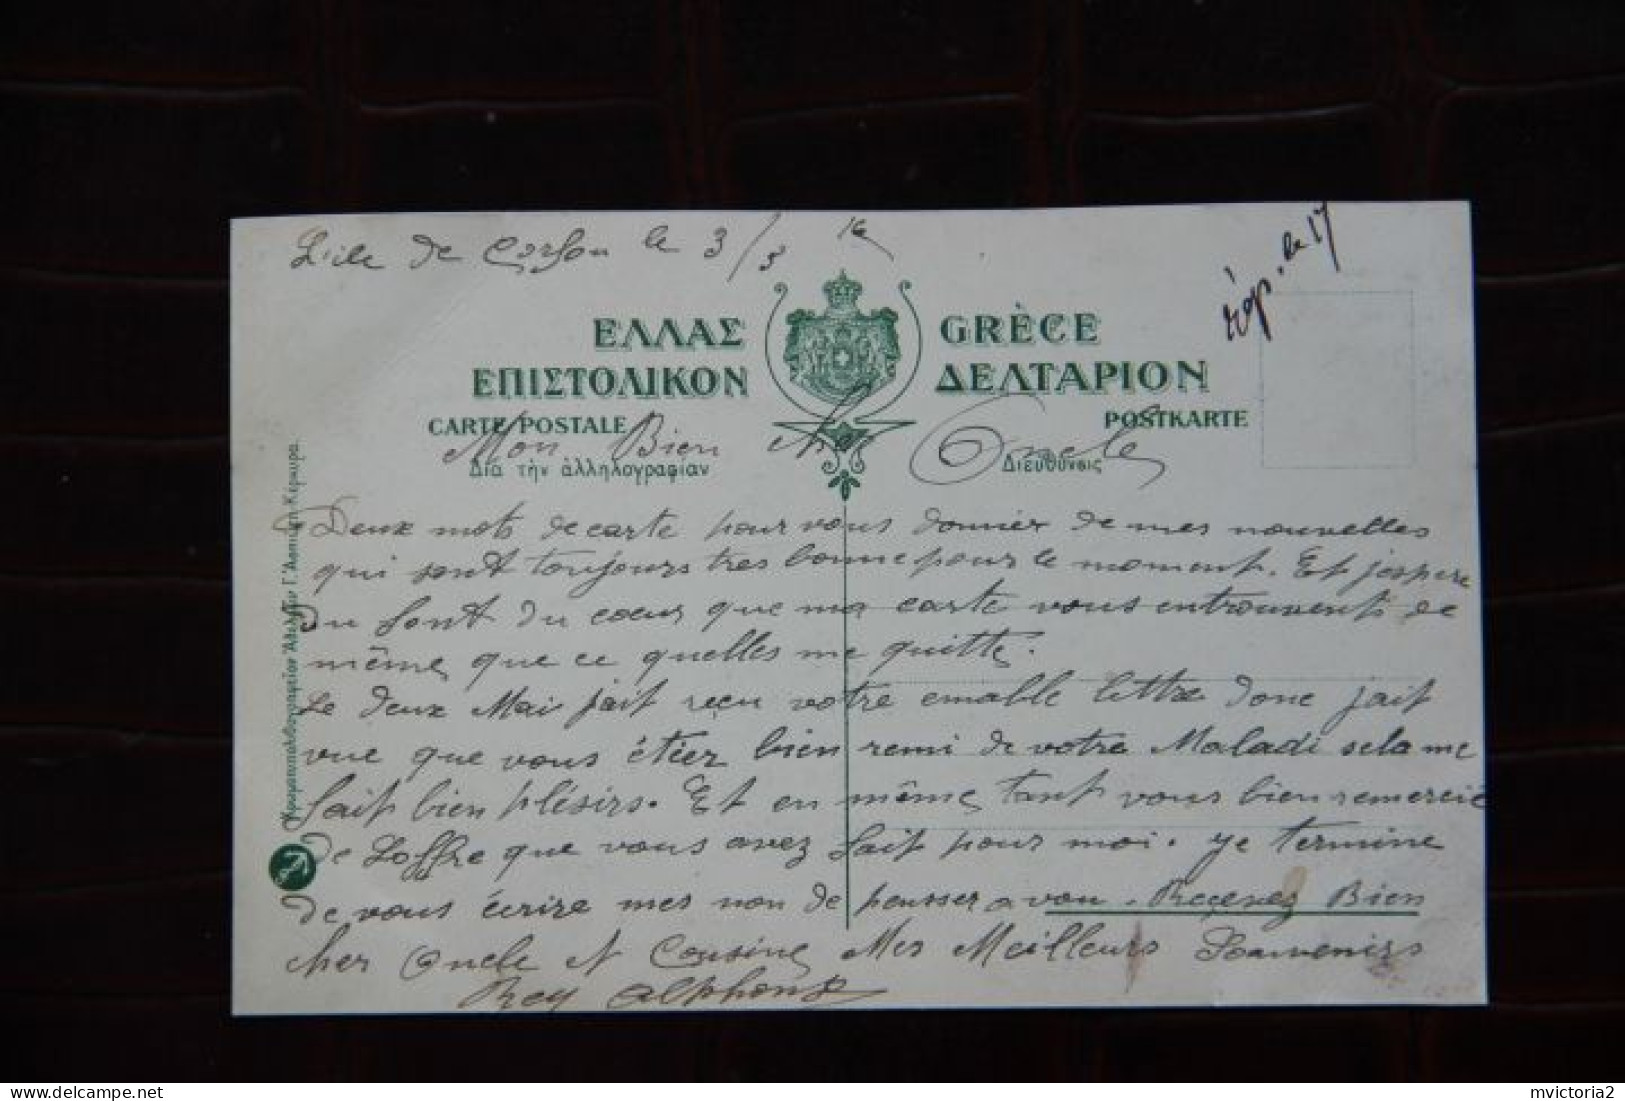 L'ile de Corfou le 3/3 16
Rép. le 17
ΕΛΛΑΣ GRÈCE
ΕΠΙΣΤΟΛΙΚΟΝ ΔΕΛΤΑΡΙΟΝ
CARTE POSTALE POSTKARTE
Διὰ τὴν ἀλληλογραφίαν Διεύθυνσις
Mon Bien cher Oncle
Deux mots de carte pour vous donnier de mes nouvelles
qui sont toujours tres bonne pour le moment. Et j'espere
du font du cœur que ma carte vous entrouvent de
même que ce quelles me quitte.
Le deux Mai jait reçu votre emable lettre donc jait
vue que vous étier bien remi de votre Maladi sela me
fait bien plésirs. Et en même tant vous bien remercié
de Loffre que vous avez fait pour moi. Je termine
de vous écrire mes non de pensser a vou. Recevez Bien
cher Oncle et Cousine Mes Meilleurs Souvenirs
Rey Alphonse